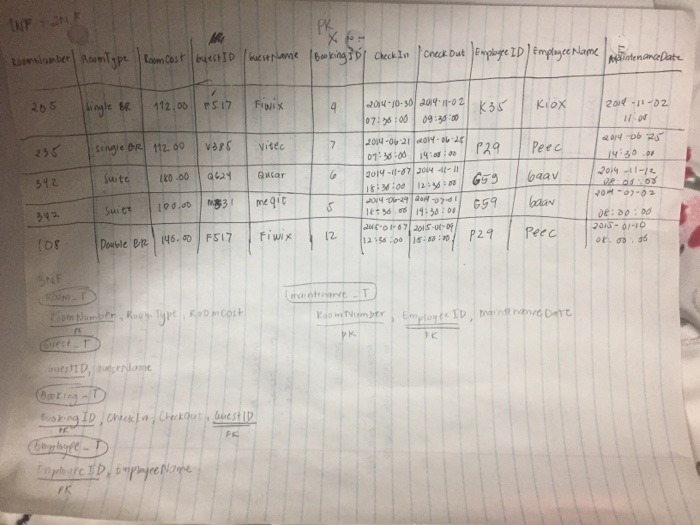 1NF - 2NF
PK
RoomNumber RoomType RoomCost GuestID GuestName BookingID Check In Check Out EmployeeID EmployeeName MaintenanceDate
205 Single BR 112.00 F517 Fiwix 9 2014-10-30 07:30:00 2014-11-02 09:30:00 K35 Kiox 2014-11-02
235 Single BR 112.00 V385 Visec 7 2014-06-21 07:30:00 2014-06-25 14:00:00 P29 Peec 2014-06-25 14:30:00
342 Suite 180.00 Q624 Qucar 6 2014-11-07 18:30:00 2014-11-11 12:30:00 G59 baav 2014-11-12
342 Suite megit 5 G59 baav 08:00:00
108 Double BR 145.00 F517 Fiwix 12 P29 Peec 2015-01-10
3NF
Room_T
RoomNumber, RoomType, RoomCost
PK
Guest_T
GuestID, GuestName
Booking_T
Booking ID, CheckIn, CheckOut, GuestID
PK FK
Employee_T
Employee ID, EmployeeName
PK
maintenance_T
RoomNumber, EmployeeID, maintenanceDate
PK FK